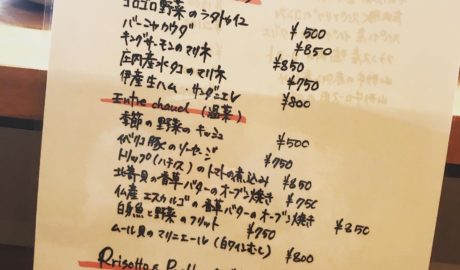 ゴロゴロ野菜のラタトゥイユ ¥500
バーニャカウダ ¥850
キングサーモンのマリネ ¥850
庄内産水タコのマリネ ¥750
伊産生ハム・サーダニエレ ¥800
Entre chaud (温菜)
季節の野菜のキッシュ ¥500
イベリコ豚のソーセージ ¥750
トリップ(ハチノス)のトマトの煮込み ¥850
北寄貝の香草バターのオーブン焼き ¥750
仏産エスカルゴの香草バターのオーブン焼き ¥850
白身魚と野菜のフリット ¥750
ムール貝のマリニエール(白ワインむし) ¥800
Rrisotto &